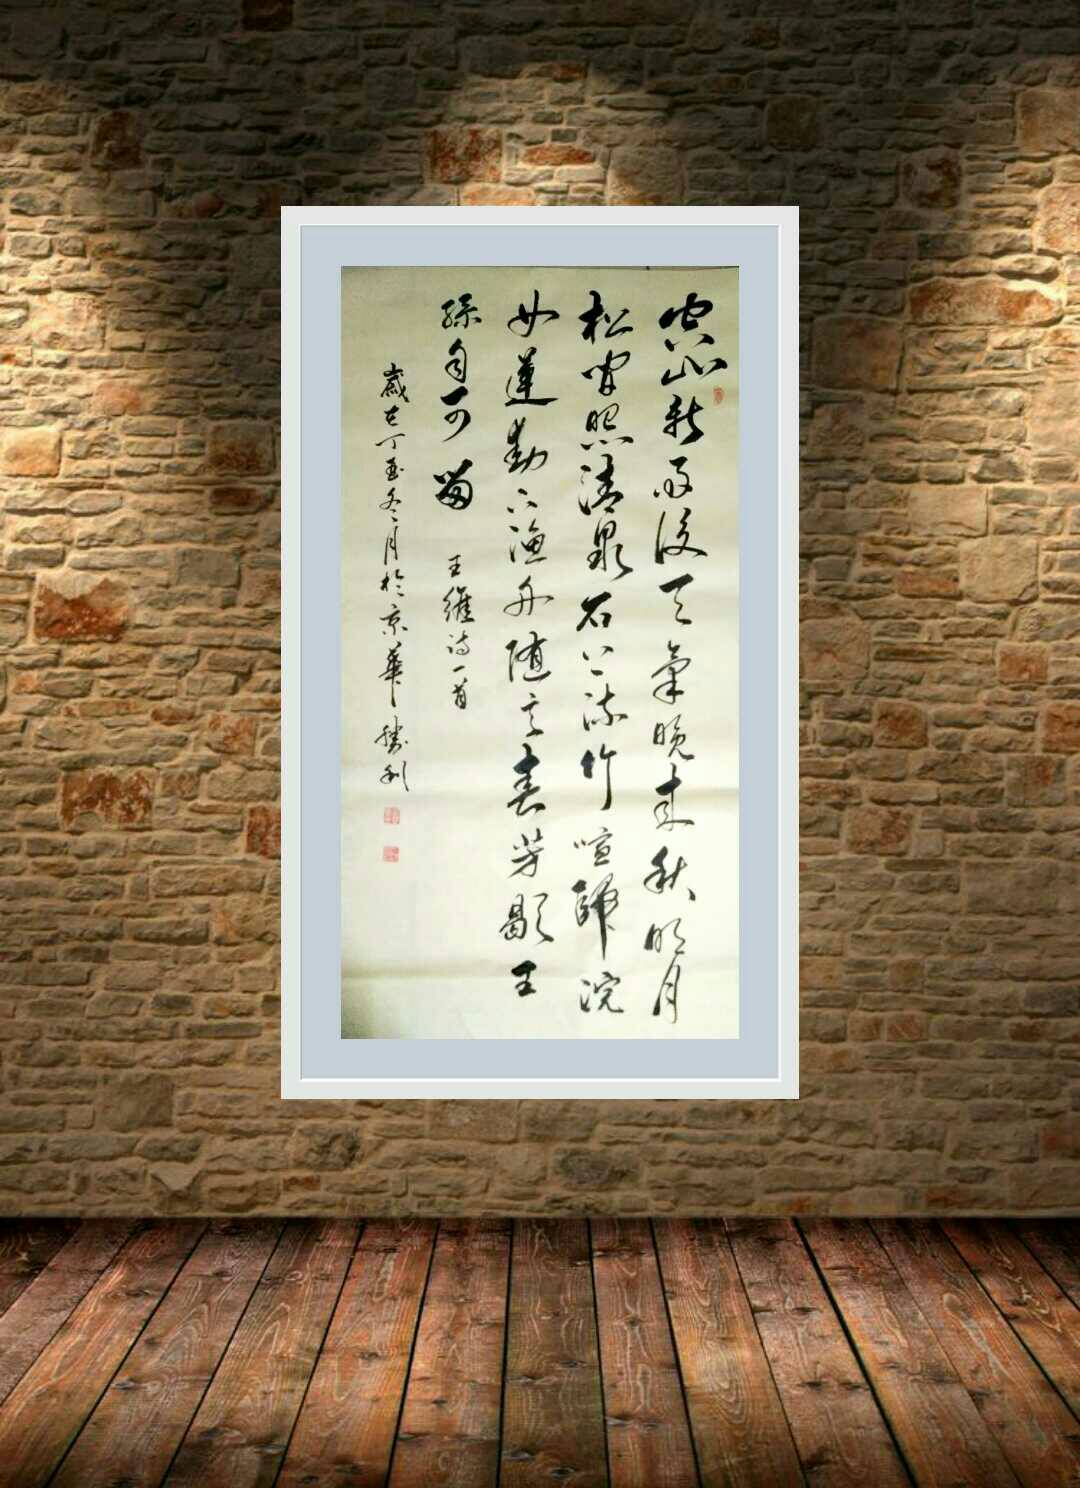 空山新雨後天氣晚来秋明月
松間照清泉石上流竹喧歸浣
女蓮動下漁舟随意春芳歇王
孫自可留 王維詩一首
歲在丁酉冬月於京華勝利